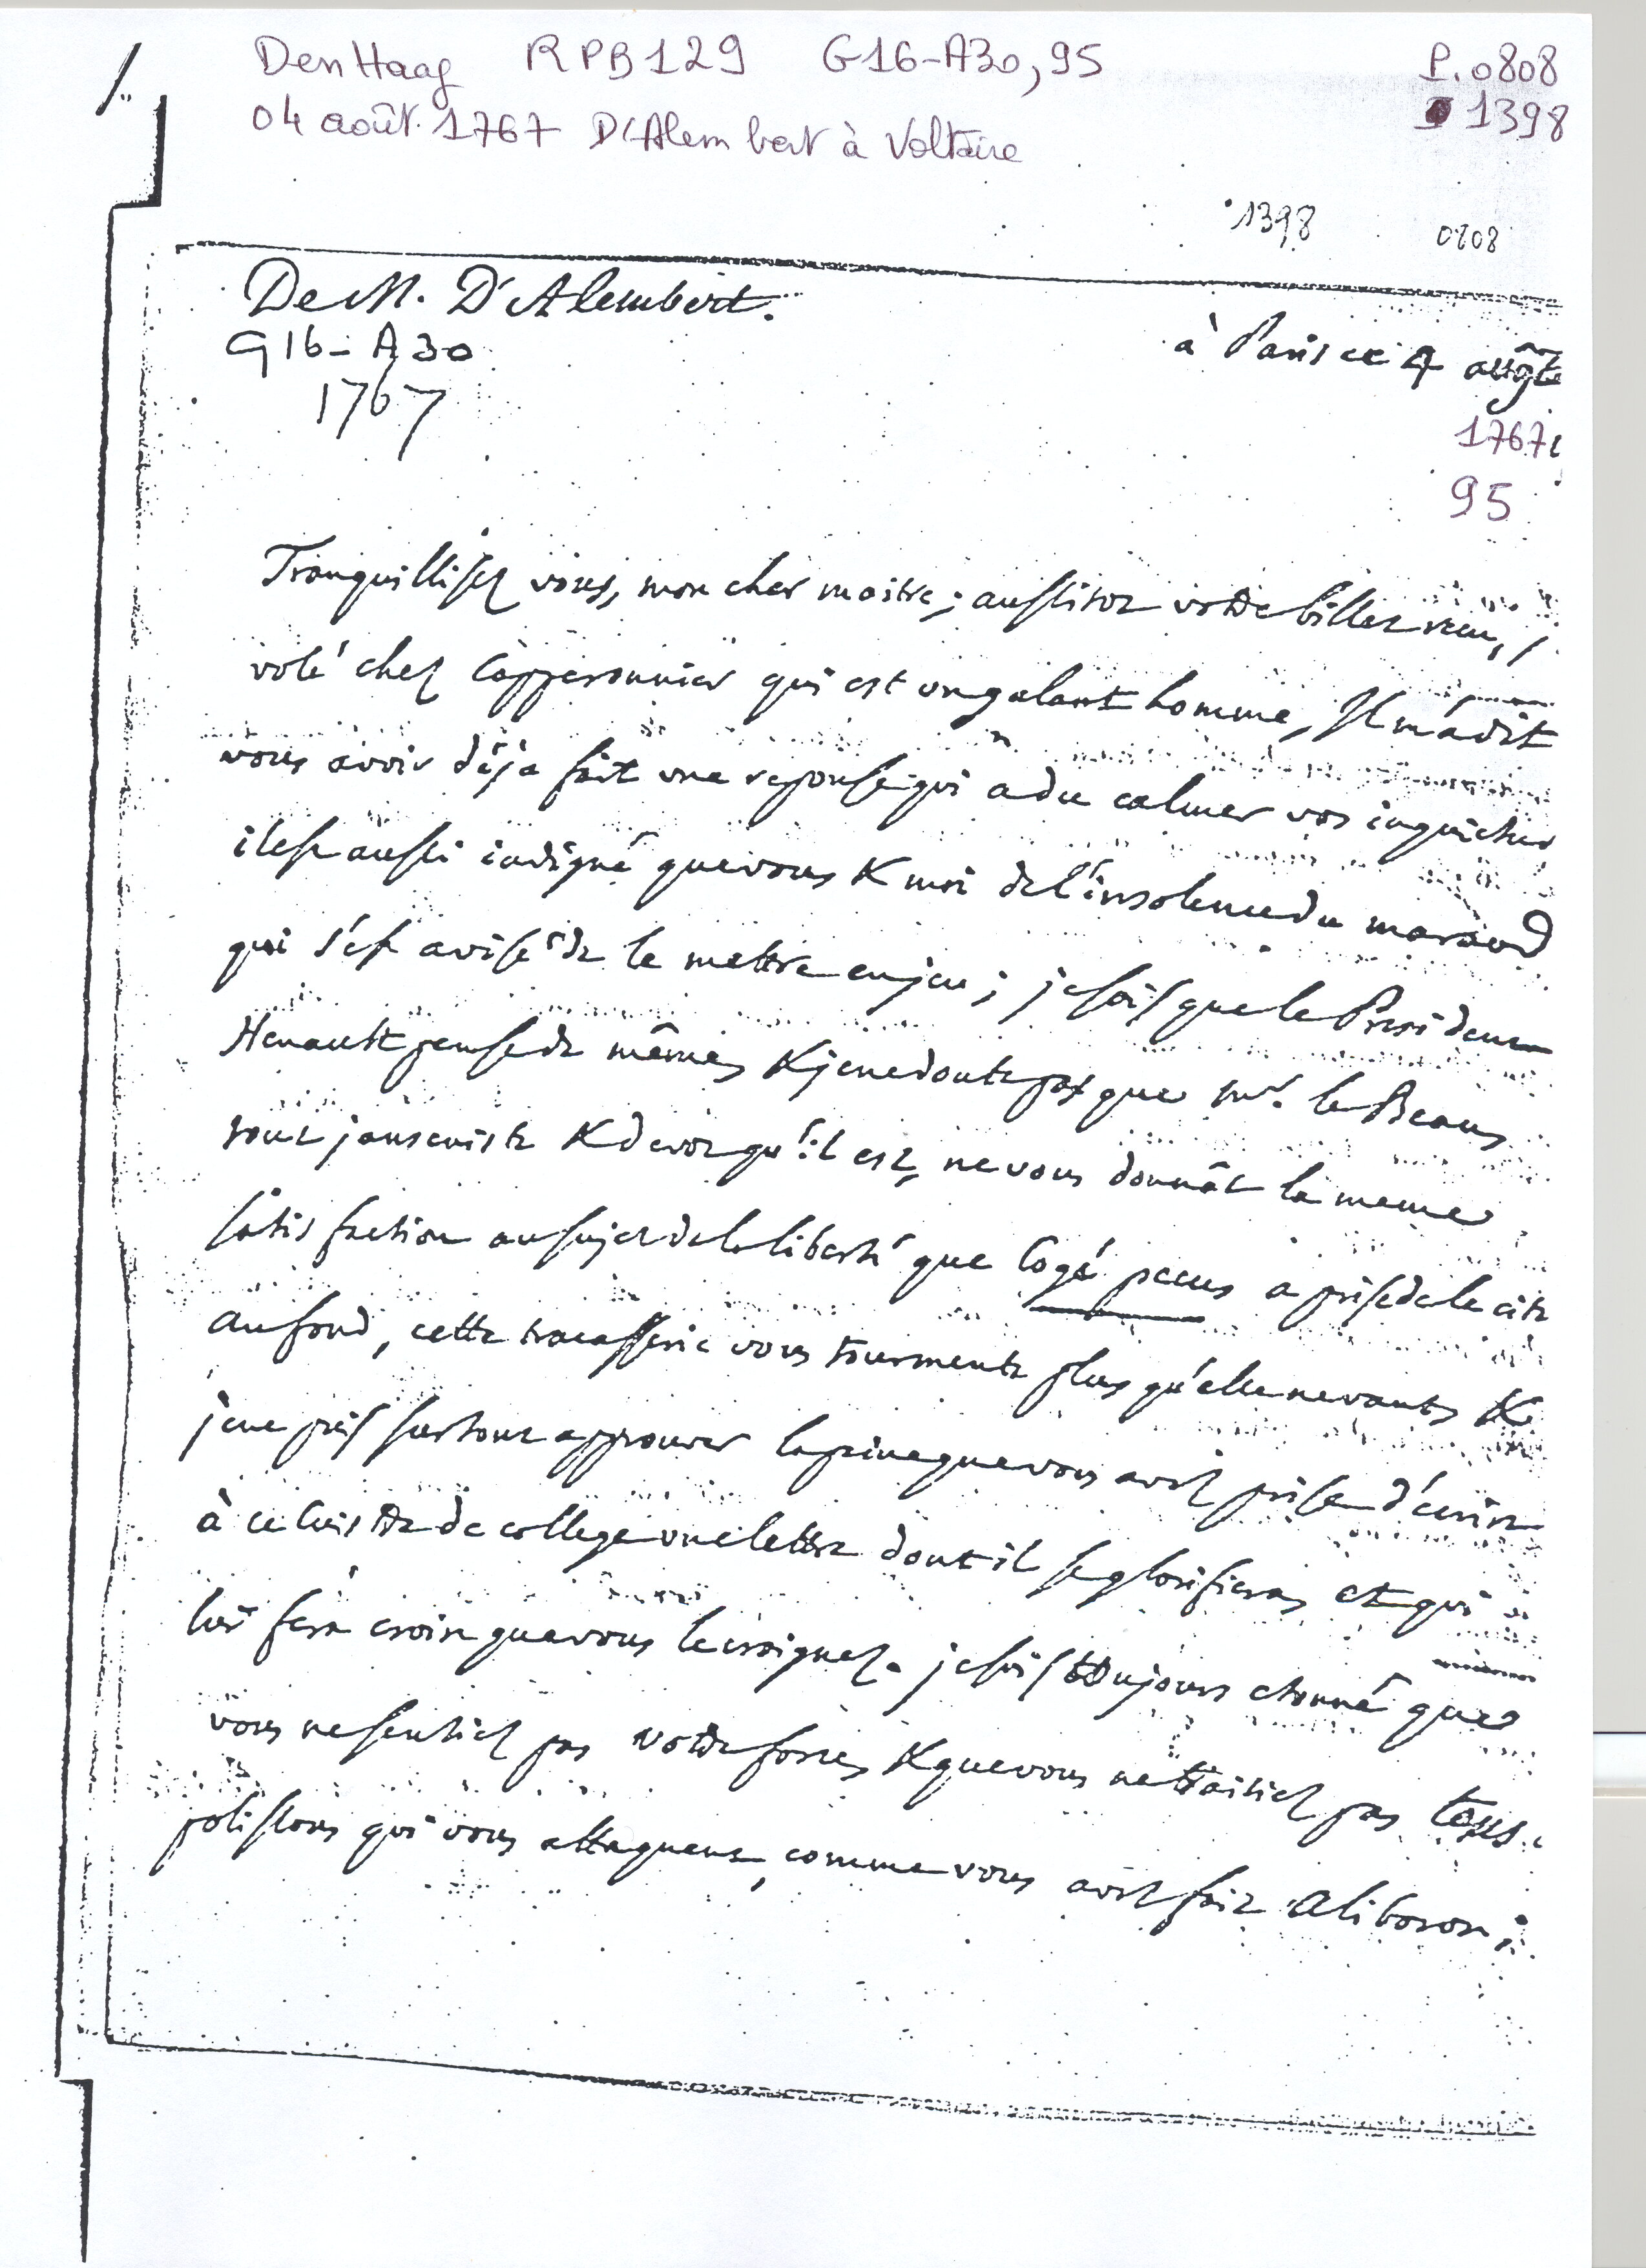 Den Haag RPB129 G16-A30, 95 P.0808
04 août 1767 D'Alembert à Voltaire 1398
1398 0808
De M. D'Alembert.
G16-A30
1767
à Paris ce 4 augte
1767
95
Tranquillisez vous, mon cher maitre; aussitot votre billet reçu, j
volé chez Capperonnier qui est un galant homme, Il m'a dit
vous avoir déja fait une reponse qui a du calmer vos inquietudes
il est aussi indigné que vous & moi de l'insolence du maraud
qui s'est avisé de le mettre en jeu; je sais que le President
Henault pense de même, & je ne doute pas que Mr. le Beau,
tout janseniste & devot qu'il est, ne vous donnât la meme
satisfaction au sujet de la liberté que Cogé pecus a prise de le cite
au fond, cette tracasserie vous tourmente plus qu'elle ne vaut, &
je ne puis surtout approuver la peine que vous avez prise d'écrire
à ce cuistre de college une lettre dont il se glorifiera, et qui
lui fera croire que vous le craignez. je suis toujours etonné que
vous ne sentiez pas votre force, & que vous ne traitiez pas tous
polissons qui vous attaquent, comme vous avez fait Aliboron;